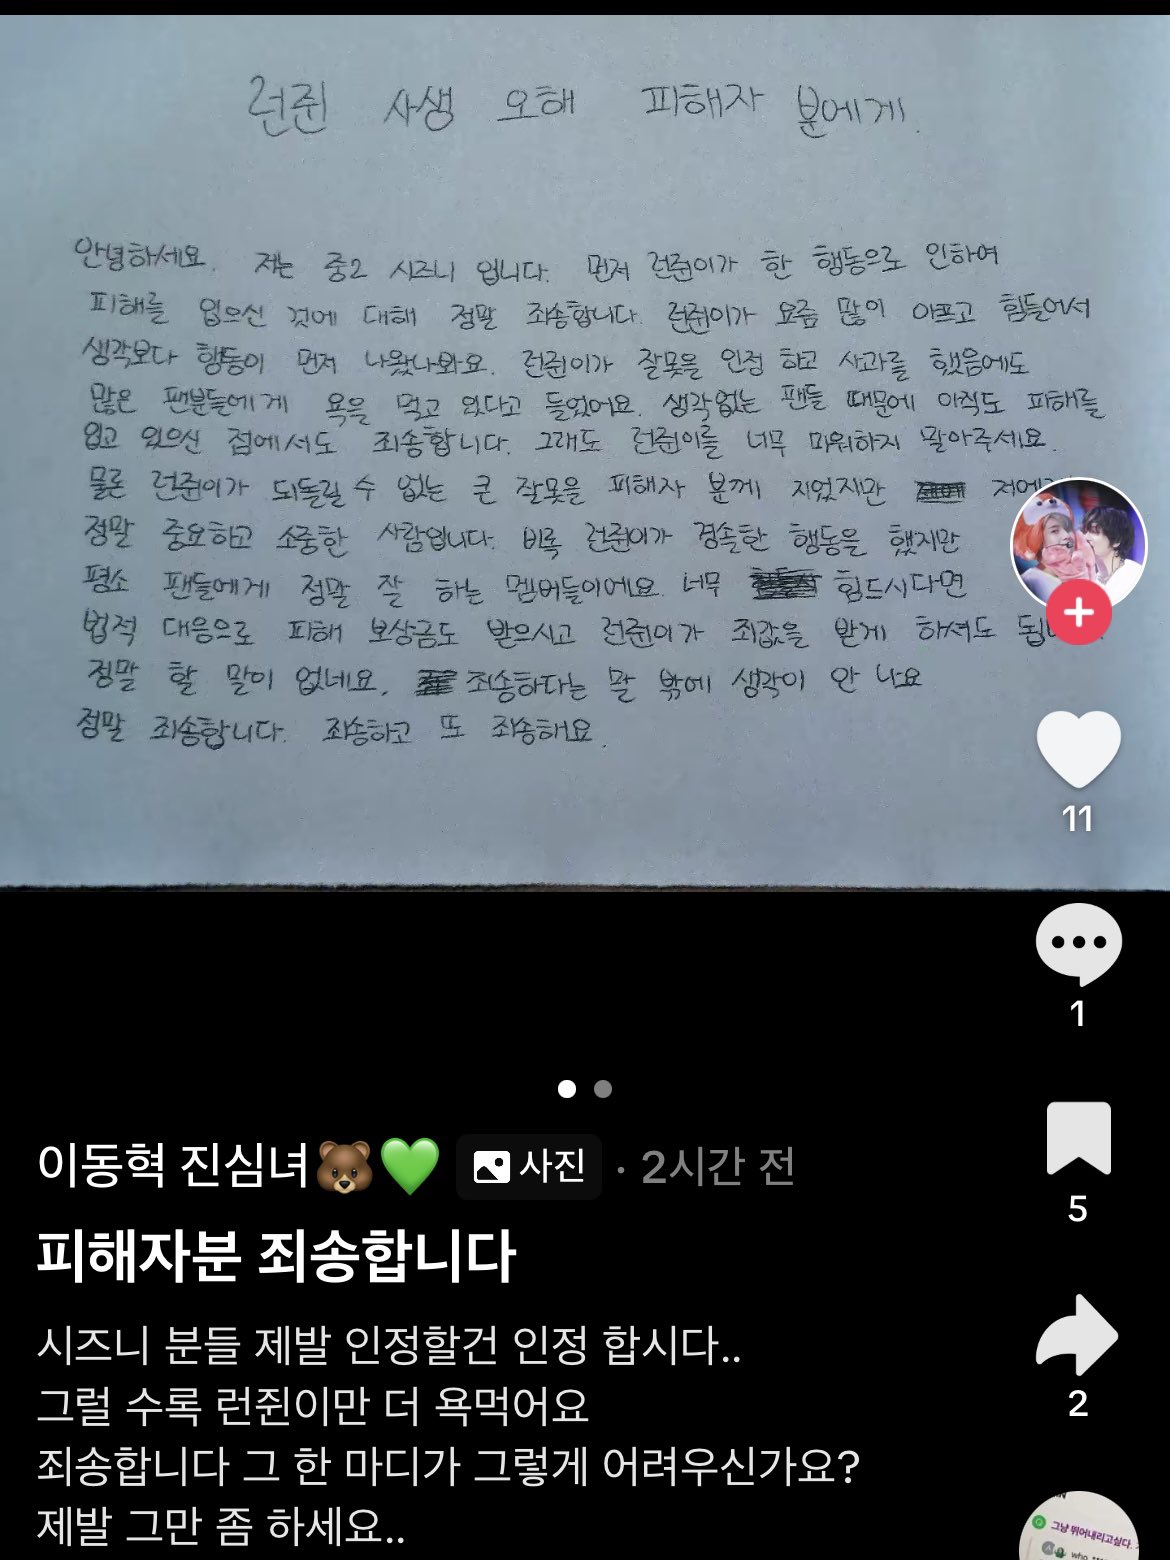 런쥔 사생 오해 피해자 분에게.
안녕하세요. 저는 중2 시즈니 입니다. 먼저 런쥔이가 한 행동으로 인하여
피해를 입으신 것에 대해 정말 죄송합니다. 런쥔이가 요즘 많이 아프고 힘들어서
생각보다 행동이 먼저 나왔나봐요. 런쥔이가 잘못을 인정 하고 사과를 했음에도
많은 팬분들에게 욕을 먹고 있다고 들었어요. 생각없는 팬들 때문에 아직도 피해를
입고 있으신 점에서도 죄송합니다. 그래도 런쥔이를 너무 미워하지 말아주세요.
물론 런쥔이가 되돌릴 수 없는 큰 잘못을 피해자 분께 지었지만 저에
정말 중요하고 소중한 사람입니다. 비록 런쥔이가 경솔한 행동을 했지만
평소 팬들에게 정말 잘 하는 멤버들이에요. 너무 힘드시다면
법적 대응으로 피해 보상금도 받으시고 런쥔이가 죄값을 받게 하셔도
정말 할 말이 없네요. 죄송하다는 말 밖에 생각이 안 나요
정말 죄송합니다. 죄송하고 또 죄송해요.
11
1
이동혁 진심녀🐻💚 사진 · 2시간 전
5
피해자분 죄송합니다
시즈니 분들 제발 인정할건 인정 합시다..
그럴 수록 런쥔이만 더 욕먹어요
2
죄송합니다 그 한 마디가 그렇게 어려우신가요?
제발 그만 좀 하세요..
그냥 뛰어내리고싶다.